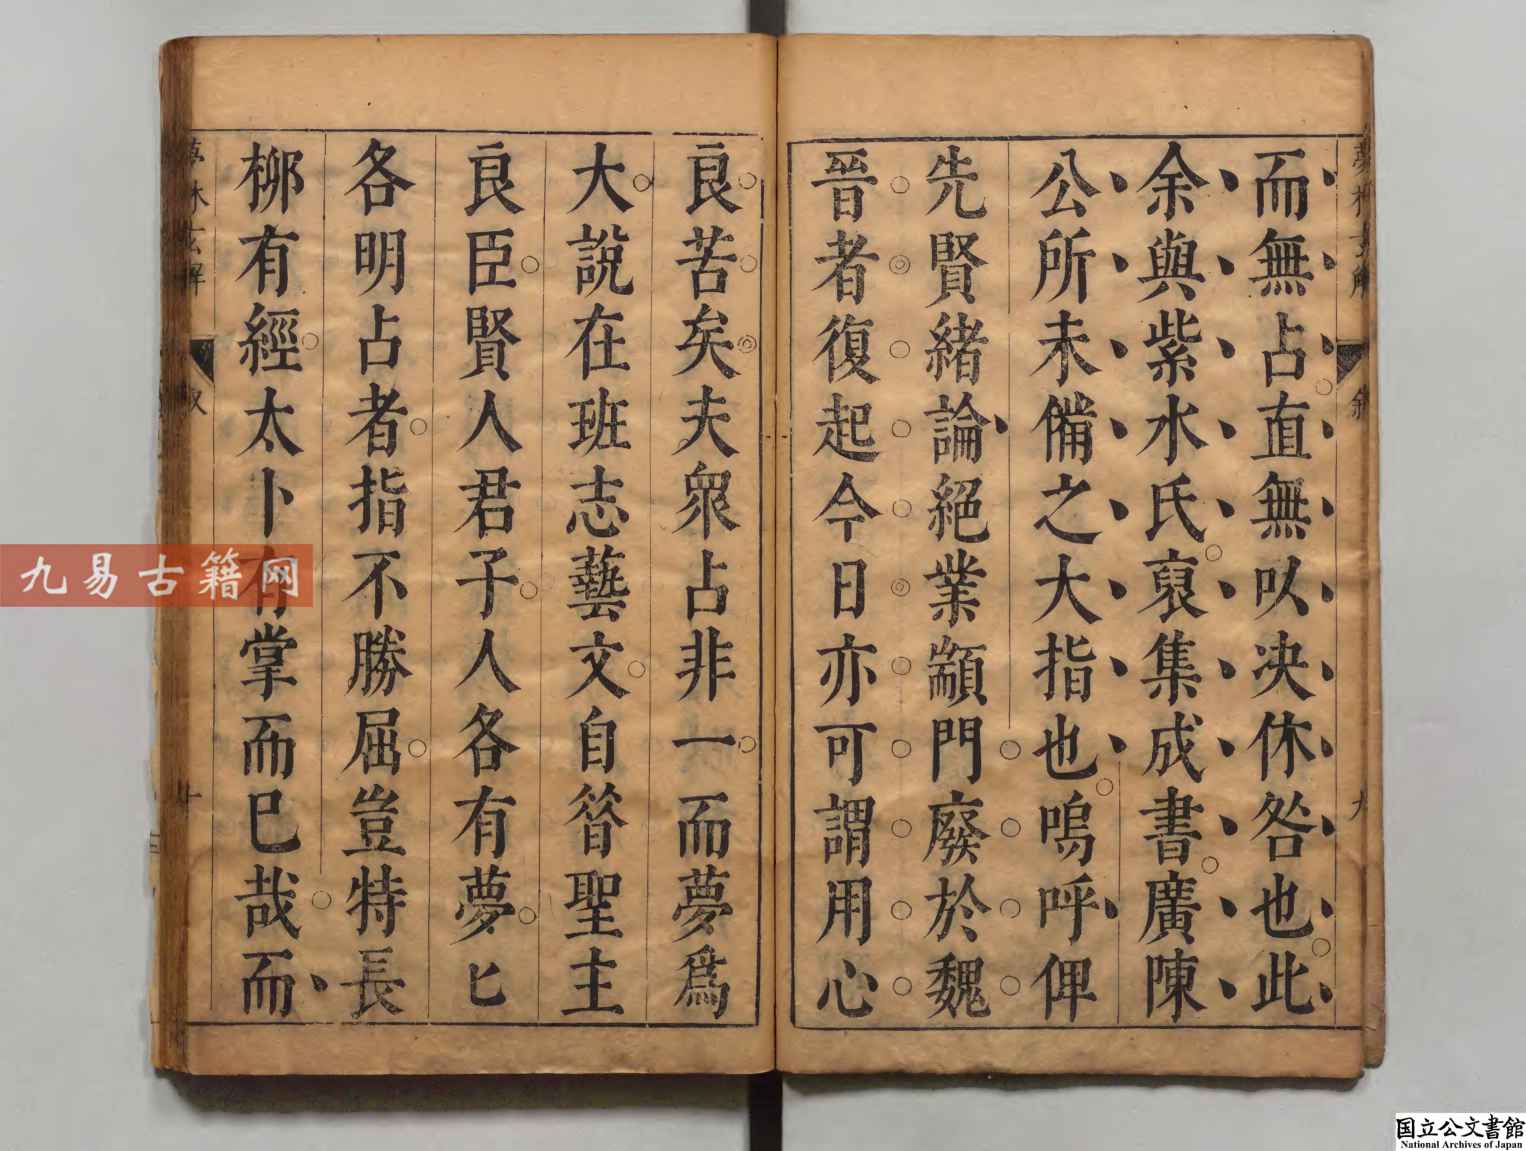 而無占直無以决休咎也此
余與紫水氏裒集成書廣陳
公所未備之大指也嗚呼俾
先賢緒論絕業顓門廢於魏
晉者復起今日亦可謂用心
良苦矣夫衆占非一而夢爲
大說在班志藝文自昝聖主
良臣賢人君子人各有夢匕
各明占者指不勝屈豈特長
柳有經太卜有掌而已哉而
夢林玄解
叙
九
夢林玄解
叙
十
九易古籍网
国立公文書館
National Archives of Japan